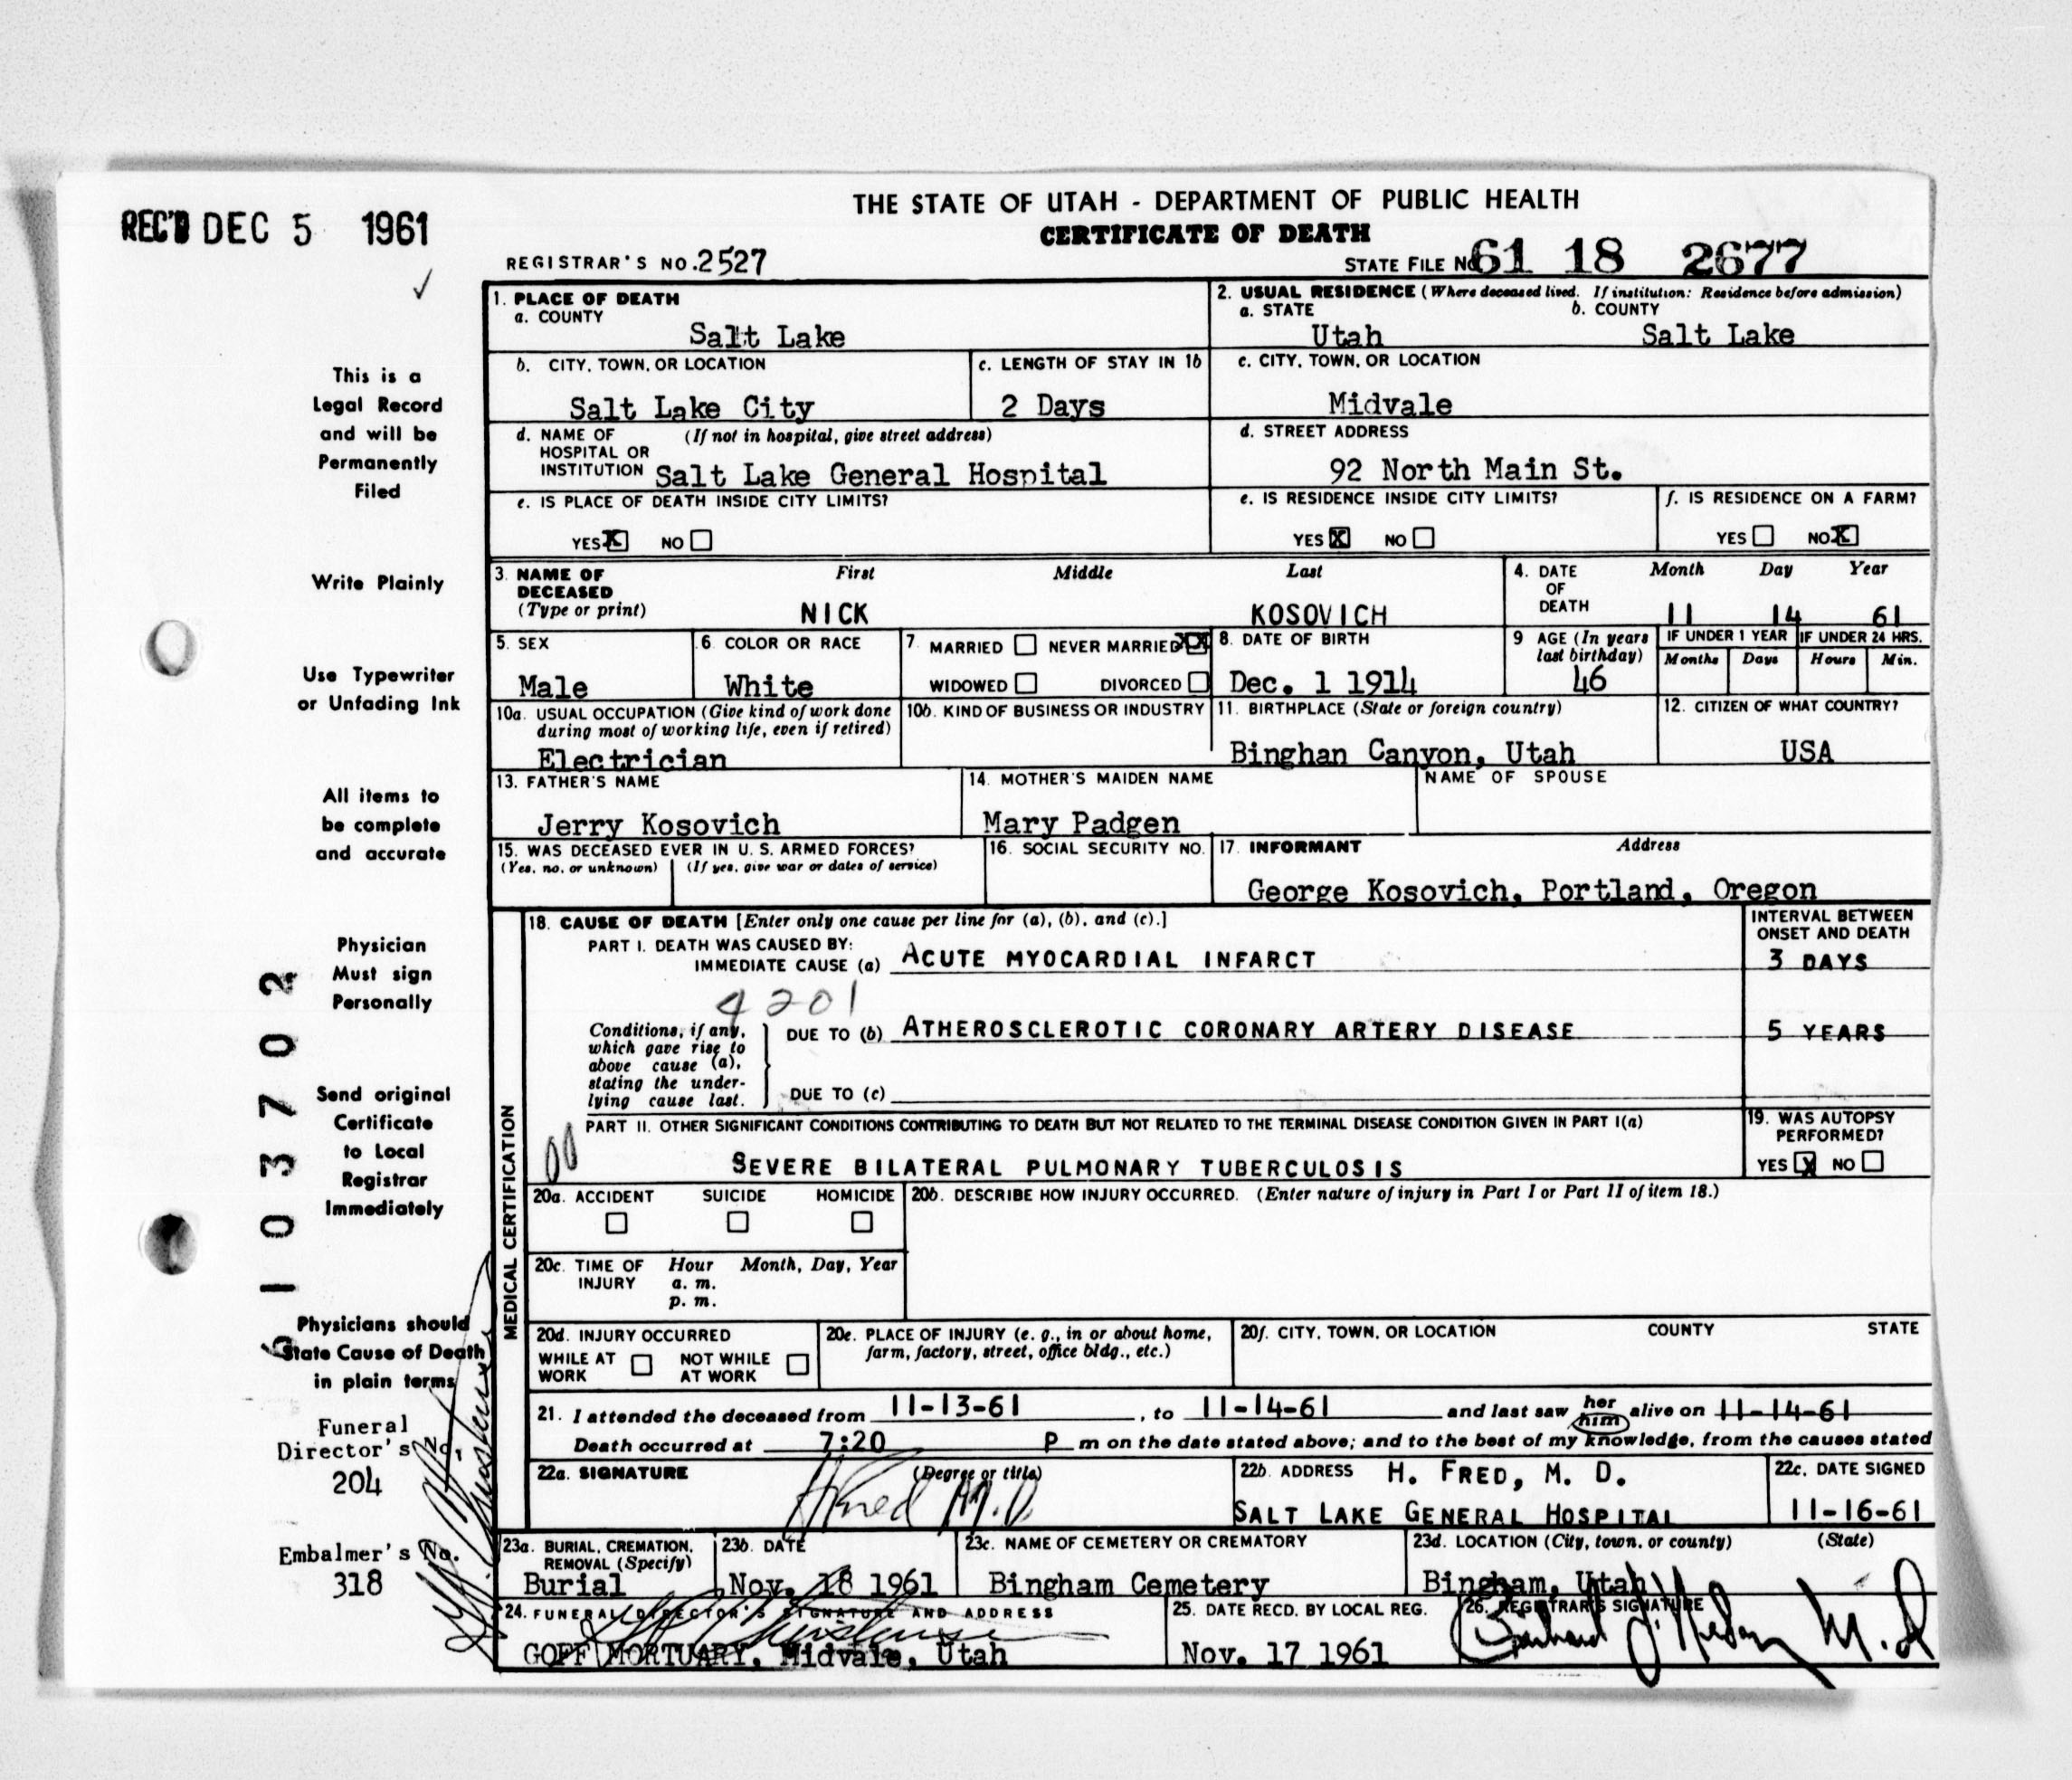 THE STATE OF UTAH - DEPARTMENT OF PUBLIC HEALTH
REC'D DEC 5 1961
CERTIFICATE OF DEATH
REGISTRAR'S NO. 2527
STATE FILE NO. 61 18 2677
1. PLACE OF DEATH
a. COUNTY
Salt Lake
2. USUAL RESIDENCE (Where deceased lived. If institution: Residence before admission)
a. STATE b. COUNTY
Utah Salt Lake
b. CITY, TOWN, OR LOCATION
Salt Lake City
c. LENGTH OF STAY IN 1b
2 Days
c. CITY, TOWN, OR LOCATION
Midvale
d. NAME OF (If not in hospital, give street address)
HOSPITAL OR
INSTITUTION Salt Lake General Hospital
d. STREET ADDRESS
92 North Main St.
e. IS PLACE OF DEATH INSIDE CITY LIMITS?
YES X NO
e. IS RESIDENCE INSIDE CITY LIMITS?
YES X NO
f. IS RESIDENCE ON A FARM?
YES NO X
3. NAME OF First Middle Last
DECEASED
(Type or print) NICK KOSOVICH
4. DATE Month Day Year
OF
DEATH 11 14 61
5. SEX
Male
6. COLOR OR RACE
White
7. MARRIED NEVER MARRIED XX
WIDOWED DIVORCED
8. DATE OF BIRTH
Dec. 1 1914
9 AGE (In years
last birthday)
46
IF UNDER 1 YEAR IF UNDER 24 HRS.
Months Days Hours Min.
10a. USUAL OCCUPATION (Give kind of work done
during most of working life, even if retired)
Electrician
10b. KIND OF BUSINESS OR INDUSTRY
11. BIRTHPLACE (State or foreign country)
Binghan Canyon, Utah
12. CITIZEN OF WHAT COUNTRY?
USA
13. FATHER'S NAME
Jerry Kosovich
14. MOTHER'S MAIDEN NAME
Mary Padgen
NAME OF SPOUSE
15. WAS DECEASED EVER IN U. S. ARMED FORCES?
(Yes, no, or unknown) (If yes, give war or dates of service)
16. SOCIAL SECURITY NO.
17. INFORMANT Address
George Kosovich, Portland, Oregon
18. CAUSE OF DEATH [Enter only one cause per line for (a), (b), and (c).]
INTERVAL BETWEEN
ONSET AND DEATH
PART I. DEATH WAS CAUSED BY:
IMMEDIATE CAUSE (a) ACUTE MYOCARDIAL INFARCT 3 DAYS
4201
Conditions, if any,
which gave rise to
above cause (a),
stating the under-
lying cause last.
DUE TO (b) ATHEROSCLEROTIC CORONARY ARTERY DISEASE 5 YEARS
DUE TO (c)
PART II. OTHER SIGNIFICANT CONDITIONS CONTRIBUTING TO DEATH BUT NOT RELATED TO THE TERMINAL DISEASE CONDITION GIVEN IN PART I(a)
00
SEVERE BILATERAL PULMONARY TUBERCULOSIS
19. WAS AUTOPSY
PERFORMED?
YES X NO
20a. ACCIDENT SUICIDE HOMICIDE
20b. DESCRIBE HOW INJURY OCCURRED. (Enter nature of injury in Part I or Part II of item 18.)
20c. TIME OF Hour Month, Day, Year
INJURY a. m.
p. m.
20d. INJURY OCCURRED
WHILE AT NOT WHILE
WORK AT WORK
20e. PLACE OF INJURY (e. g., in or about home,
farm, factory, street, office bldg., etc.)
20f. CITY, TOWN, OR LOCATION COUNTY STATE
21. I attended the deceased from 11-13-61, to 11-14-61 and last saw her him alive on 11-14-61
Death occurred at 7:20 P m on the date stated above; and to the best of my knowledge, from the causes stated
22a. SIGNATURE (Degree or title)
H Fred M.D
22b. ADDRESS H. FRED, M. D.
SALT LAKE GENERAL HOSPITAL
22c. DATE SIGNED
11-16-61
23a. BURIAL, CREMATION,
REMOVAL (Specify)
Burial
23b. DATE
Nov. 18 1961
23c. NAME OF CEMETERY OR CREMATORY
Bingham Cemetery
23d. LOCATION (City, town, or county) (State)
Bingham, Utah
24. FUNERAL DIRECTOR'S SIGNATURE AND ADDRESS
GOFF MORTUARY, Midvale, Utah
25. DATE RECD. BY LOCAL REG.
Nov. 17 1961
26. REGISTRAR'S SIGNATURE
M.D
MEDICAL CERTIFICATION
This is a
Legal Record
and will be
Permanently
Filed
Write Plainly
Use Typewriter
or Unfading Ink
All items to
be complete
and accurate
Physician
Must sign
Personally
Send original
Certificate
to Local
Registrar
Immediately
Physicians should
State Cause of Death
in plain terms
Funeral
Director's No.
204
Embalmer's No.
318
6103702